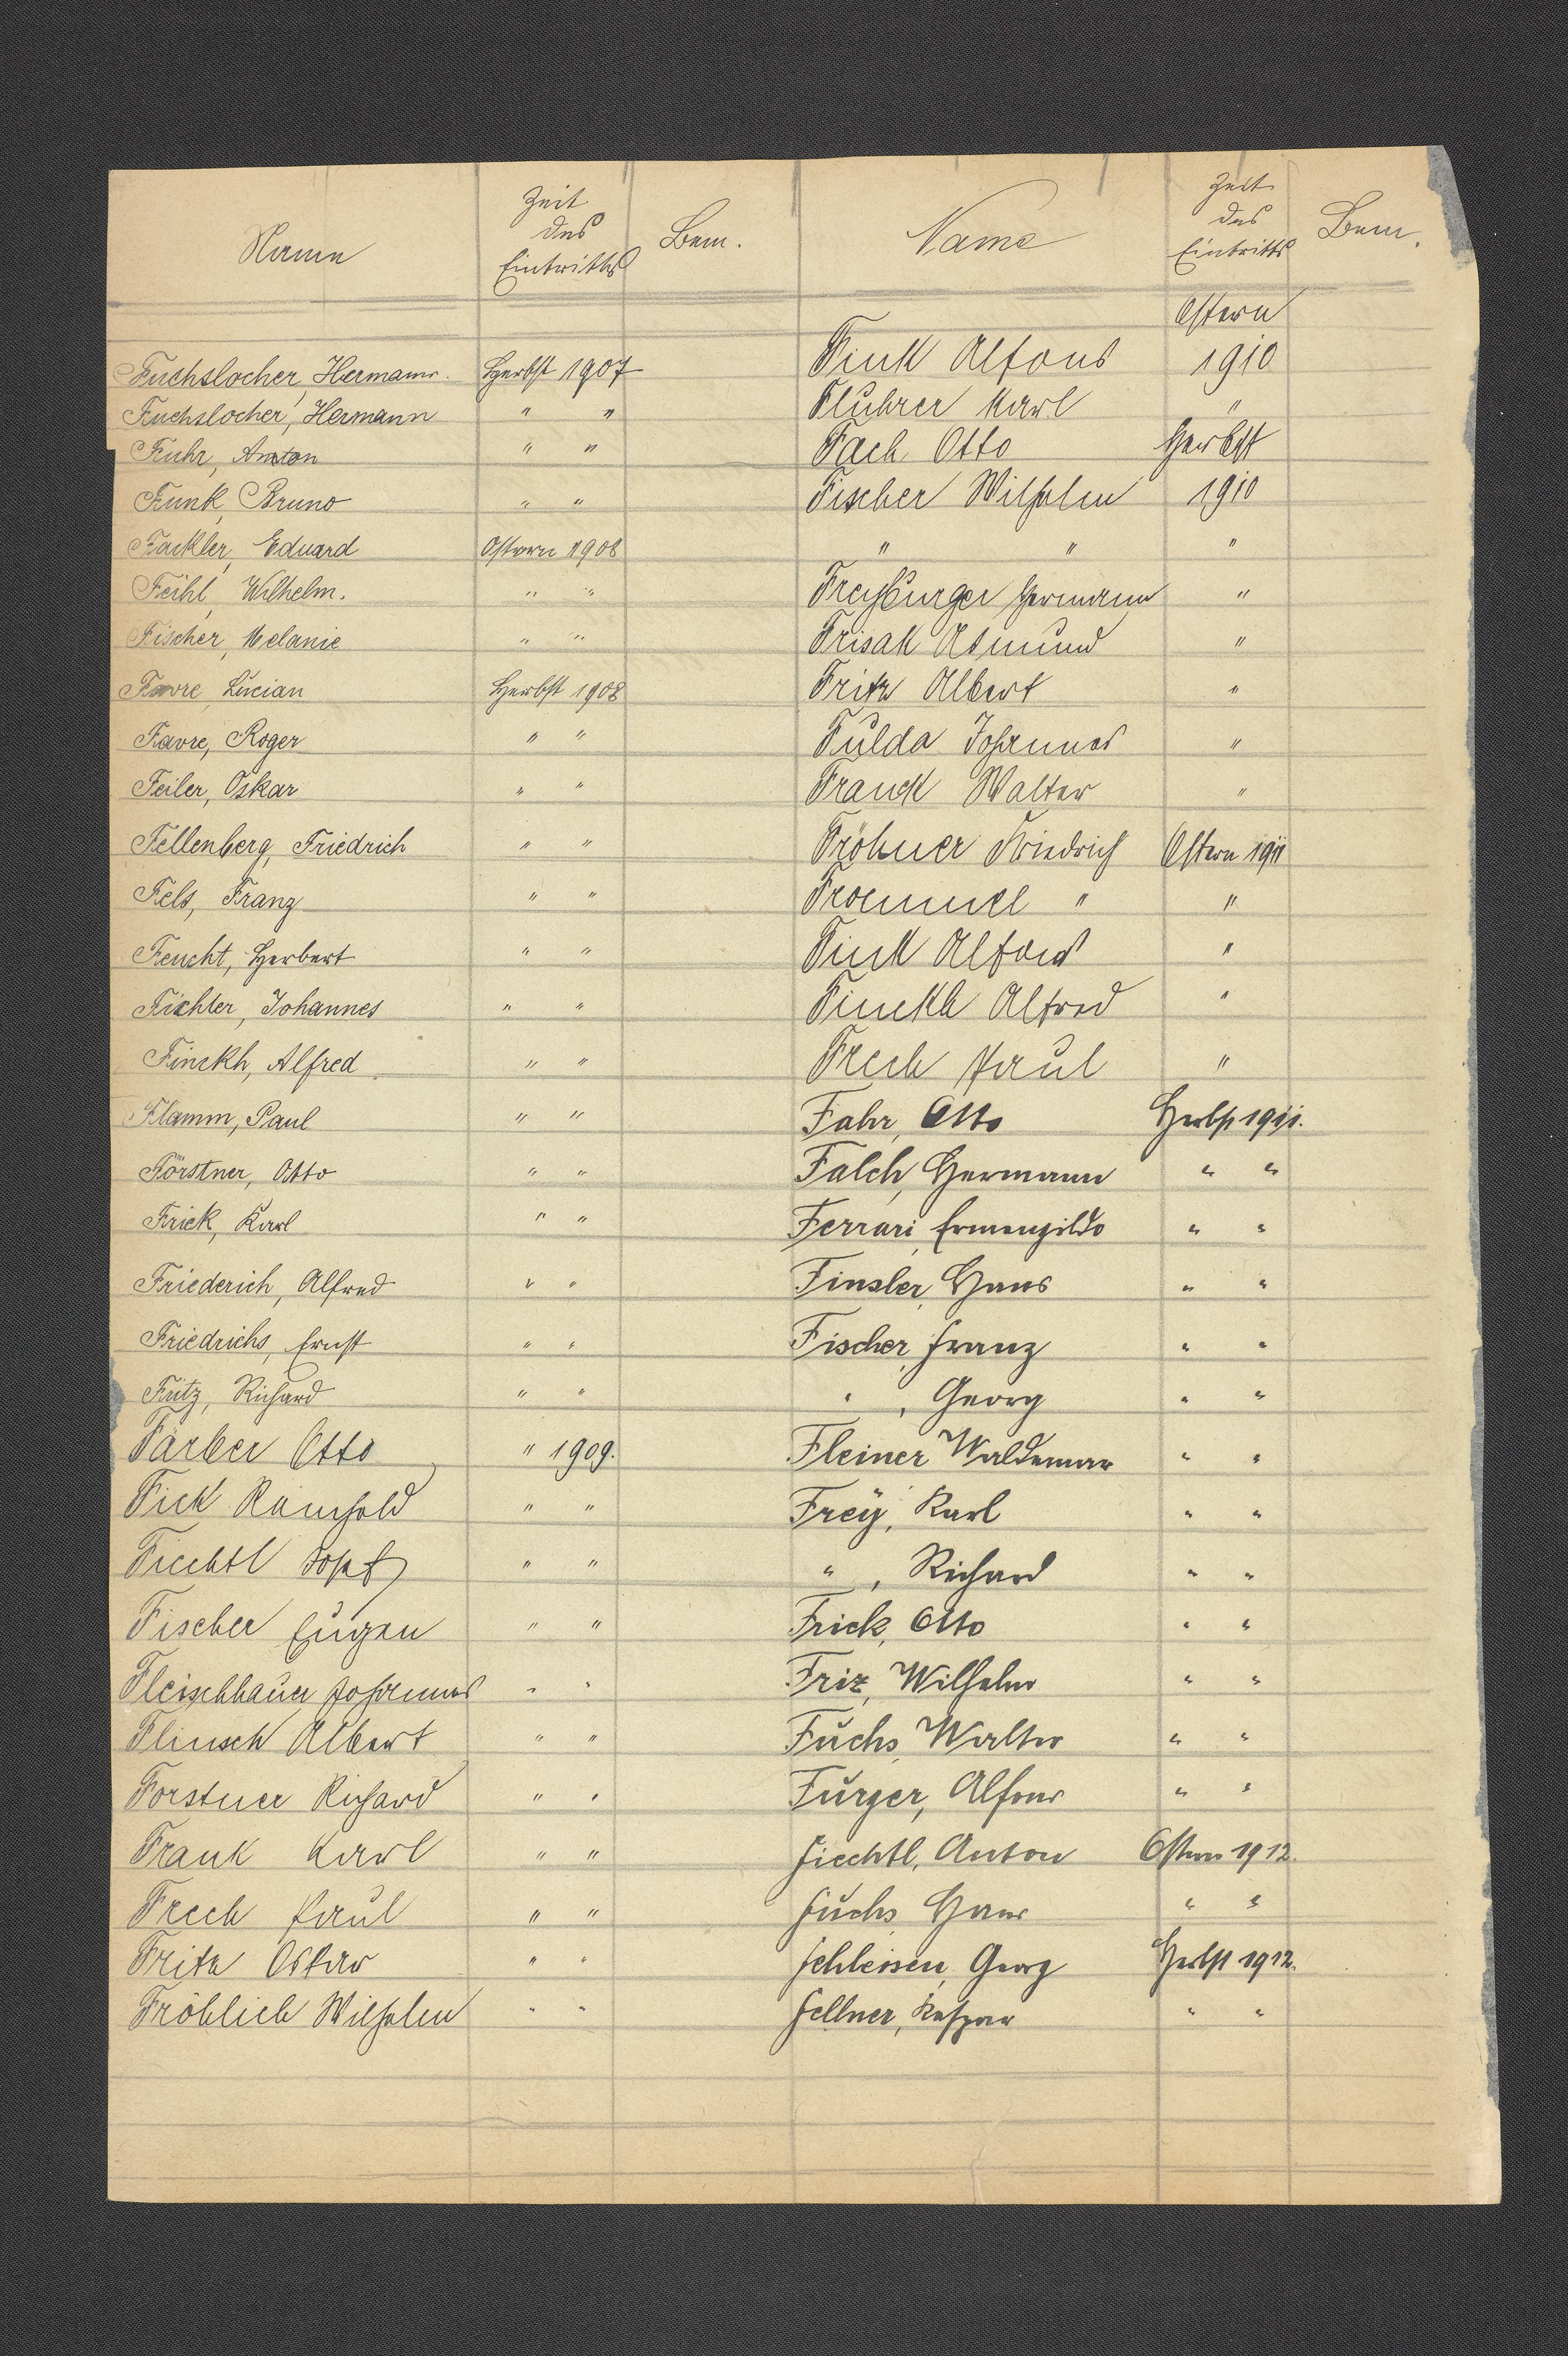 Name Zeit des Eintritts Bem.
Fuchslocher, Hermann. Herbst 1907
Fuchslocher, Hermann " "
Fuhr, Anton " "
Funk, Bruno " "
Fackler, Eduard Ostern 1908
Feihl, Wilhelm. " "
Fischer, Melanie " "
Favre, Lucian Herbst 1908
Favre, Roger " "
Feiler, Oskar " "
Fellenberg, Friedrich " "
Fels, Franz " "
Feucht, Herbert " "
Fichter, Johannes " "
Finckh, Alfred " "
Flamm, Paul " "
Förstner, Otto " "
Frick, Karl " "
Friederich, Alfred " "
Friedrichs, Ernst " "
Fritz, Richard " "
Färber Otto " 1909.
Fick Reinhold " "
Fiechtl " "
Fischer Eugen " "
Fleischhauer Johannes " "
Flinsch Albert " "
Forstner Richard " "
Frank Karl " "
Frech Paul " "
Fritz Oskar " "
Fröhlich Wilhelm " "
Name Zeit des Eintritts Bem.
Fink Alfons Ostern 1910
Fluhrer Karl "
Fach Otto Herbst
Fischer Wilhelm 1910
" " "
Freyburger Hermann "
Frisak Asmund "
Fritz Albert "
Fulda Johannes "
Franck Walter "
Fröhner Friedrich Ostern 1911
Froemmel " "
Fink Alfons "
Finckh Alfred "
Frech Paul "
Fahr, Otto Herbst 1911.
Falch, Hermann " "
Ferrari, Ermengildo " "
Finsler, Hans " "
Fischer, Franz " "
" , Georg " "
Fleiner Waldemar " "
Frey, Karl " "
" , Richard " "
Frick, Otto " "
Friz, Wilhelm " "
Fuchs, Walter " "
Furger, Alfons " "
Fiechtl, Anton Ostern 1912.
Fuchs Hans " "
Fehleisen, Georg Herbst 1912.
Fellner, Kaspar " "